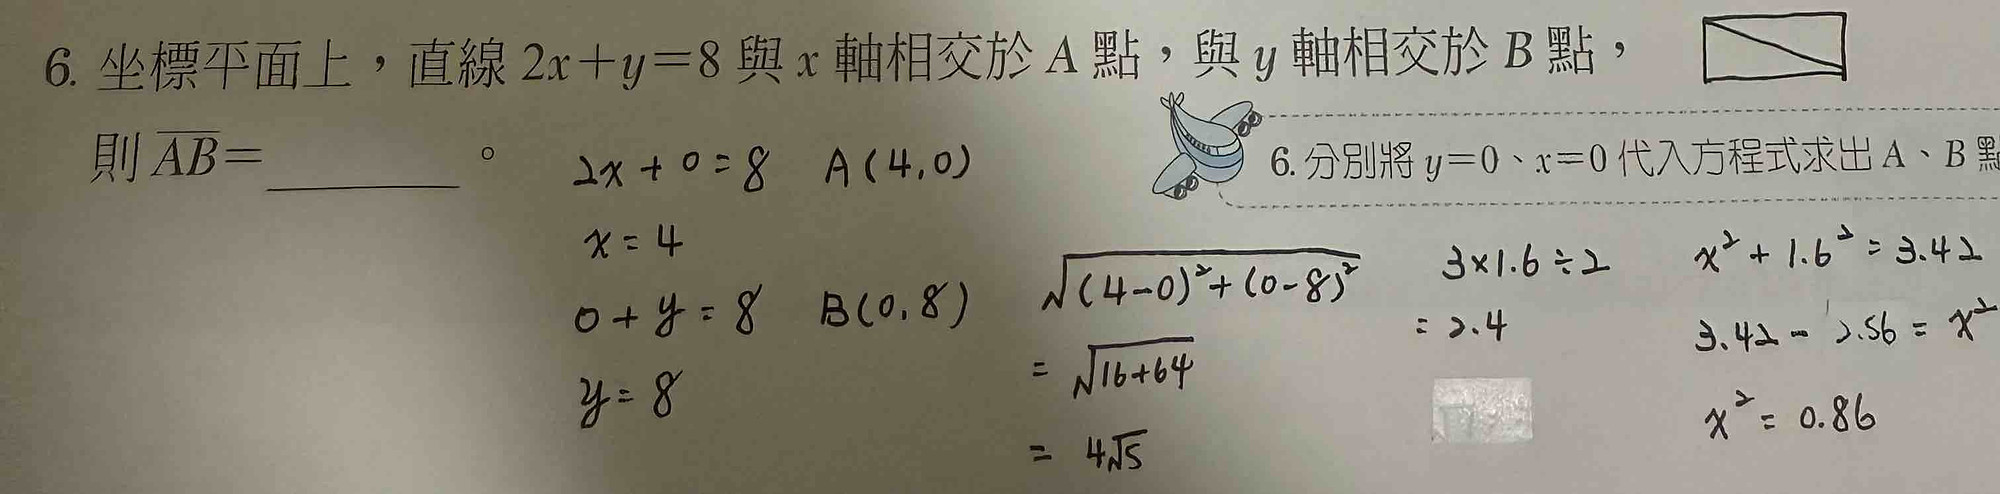 6. 坐標平面上，直線 2x+y=8 與 x 軸相交於 A 點，與 y 軸相交於 B 點，
則 AB=________。
6. 分別將 y=0、x=0 代入方程式求出 A、B 點
2x + 0 = 8 A(4,0)
x = 4
0 + y = 8 B(0,8)
y = 8
√((4-0)²+(0-8)²)
= √(16+64)
= 4√5
3×1.6÷2
= 2.4
x² + 1.6² = 3.42
3.42 - 2.56 = x²
x² = 0.86